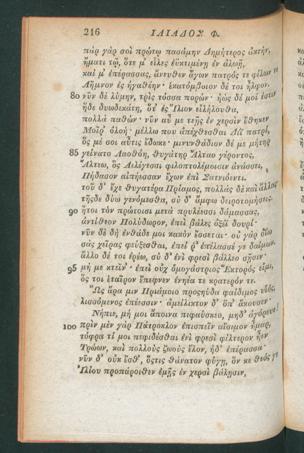 216 ΙΛΙΑΔΟΣ Φ.
πὰρ γὰρ σοὶ πρώτῳ πασάμην Δημήτερος ἀκτήν,
ἤματι τῷ, ὅτε μ' εἷλες ἐϋκτιμένῃ ἐν ἀλωῇ,
καί μ' ἐπέρασσας, ἄνευθεν ἄγων πατρός τε φίλων τε
Λῆμνον ἐς ἠγαθέην· ἑκατόμβοιον δέ τοι ἦλφον.
80 νῦν δὲ λύμην, τρὶς τόσσα πορών· ἠὼς δέ μοί ἐστιν
ἥδε δυωδεκάτη, ὅτ' ἐς Ἴλιον εἰλήλουθα,
πολλὰ παθών· νῦν αὖ με τεῇς ἐν χερσὶν ἔθηκεν
Μοῖρ' ὀλοή· μέλλω που ἀπέχθεσθαι Διῒ πατρί,
ὅς μέ σοι αὖτις ἔδωκε· μινυνθάδιον δέ με μήτηρ
85 γείνατο Λαοθόη, θυγάτηρ Ἄλταο γέροντος,
Ἄλτεω, ὃς Λελέγεσσι φιλοπτολέμοισιν ἀνάσσει,
Πήδασον αἰπήεσσαν ἔχων ἐπὶ Σατνιόεντι.
τοῦ δ' ἔχε θυγατέρα Πρίαμος, πολλὰς δὲ καὶ ἄλλας·
τῆσδε δύω γενόμεσθα, σὺ δ' ἄμφω δειροτομήσεις.
90 ἤτοι τὸν πρώτοισι μετὰ πρυλέεσσι δάμασσας,
ἀντίθεον Πολύδωρον, ἐπεὶ βάλες ὀξέϊ δουρί·
νῦν δὲ δὴ ἐνθάδε μοι κακὸν ἔσσεται· οὐ γὰρ ὀΐω
σὰς χεῖρας φεύξεσθαι, ἐπεί ῥ' ἐπέλασσέ γε δαίμων.
ἄλλο δέ τοι ἐρέω, σὺ δ' ἐνὶ φρεσὶ βάλλεο σῇσιν·
95 μή με κτεῖν'· ἐπεὶ οὐχ ὁμογάστριος Ἕκτορός εἰμι,
ὅς τοι ἑταῖρον ἔπεφνεν ἐνηέα τε κρατερόν τε.
Ὣς ἄρα μιν Πριάμοιο προσηύδα φαίδιμος υἱός,
λισσόμενος ἐπέεσσιν· ἀμείλικτον δ' ὄπ' ἄκουσεν·
Νήπιε, μή μοι ἄποινα πιφαύσκεο, μηδ' ἀγόρευε·
100 πρὶν μὲν γὰρ Πάτροκλον ἐπισπεῖν αἴσιμον ἦμαρ,
τόφρα τί μοι πεφιδέσθαι ἐνὶ φρεσὶ φίλτερον ἦεν
Τρώων, καὶ πολλοὺς ζωοὺς ἕλον, ἠδ' ἐπέρασσα·
νῦν δ' οὐκ ἔσθ', ὅστις θάνατον φύγῃ, ὅν κε θεός γε
Ἰλίου προπάροιθεν ἐμῇς ἐν χερσὶ βάλῃσιν,